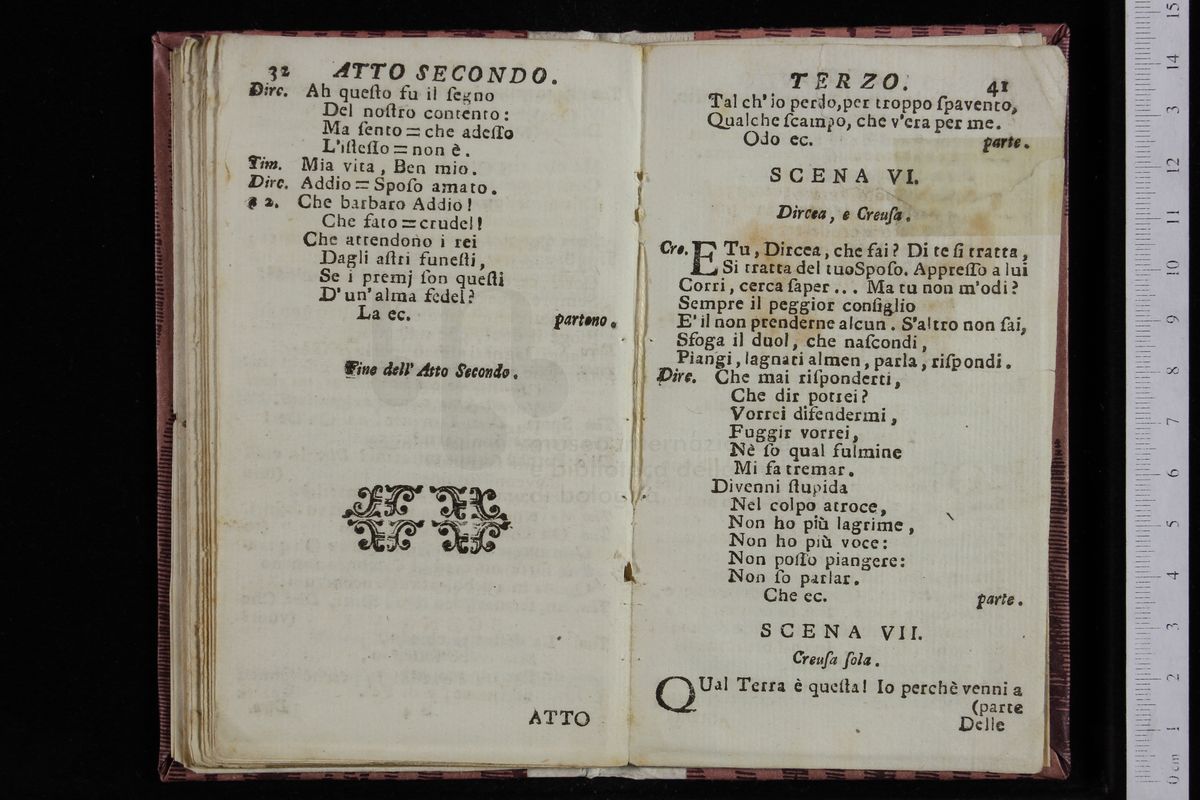 32 ATTO SECONDO.
Dirc. Ah queſto fu il ſegno
Del noſtro contento:
Ma ſento = che adeſſo
L'iſteſſo = non è.
Tim. Mia vita, Ben mio.
Dirc. Addio = Spoſo amato.
a 2. Che barbaro Addio!
Che fato = crudel!
Che attendono i rei
Dagli aſtri funeſti,
Se i premj ſon queſti
D'un'alma fedel?
La ec. partono.
Fine dell'Atto Secondo.
ATTO
TERZO. 41
Tal ch'io perdo, per troppo ſpavento,
Qualche ſcampo, che v'era per me.
Odo ec. parte.
SCENA VI.
Dircea, e Creuſa.
Cre. E Tu, Dircea, che fai? Di te ſi tratta,
Si tratta del tuo Spoſo. Appreſſo a lui
Corri, cerca ſaper ... Ma tu non m'odi?
Sempre il peggior conſiglio
E' il non prenderne alcun. S'altro non ſai,
Sfoga il duol, che naſcondi,
Piangi, lagnati almen, parla, riſpondi.
Dirc. Che mai riſponderti,
Che dir potrei?
Vorrei difendermi,
Fuggir vorrei,
Nè ſo qual fulmine
Mi fa tremar.
Divenni ſtupida
Nel colpo atroce,
Non ho più lagrime,
Non ho più voce:
Non poſſo piangere:
Non ſo parlar.
Che ec. parte.
SCENA VII.
Creuſa ſola.
QUal Terra è queſta! Io perchè venni a
(parte
Delle
15
14
13
12
11
10
9
8
7
6
5
4
3
2
1
0 cm